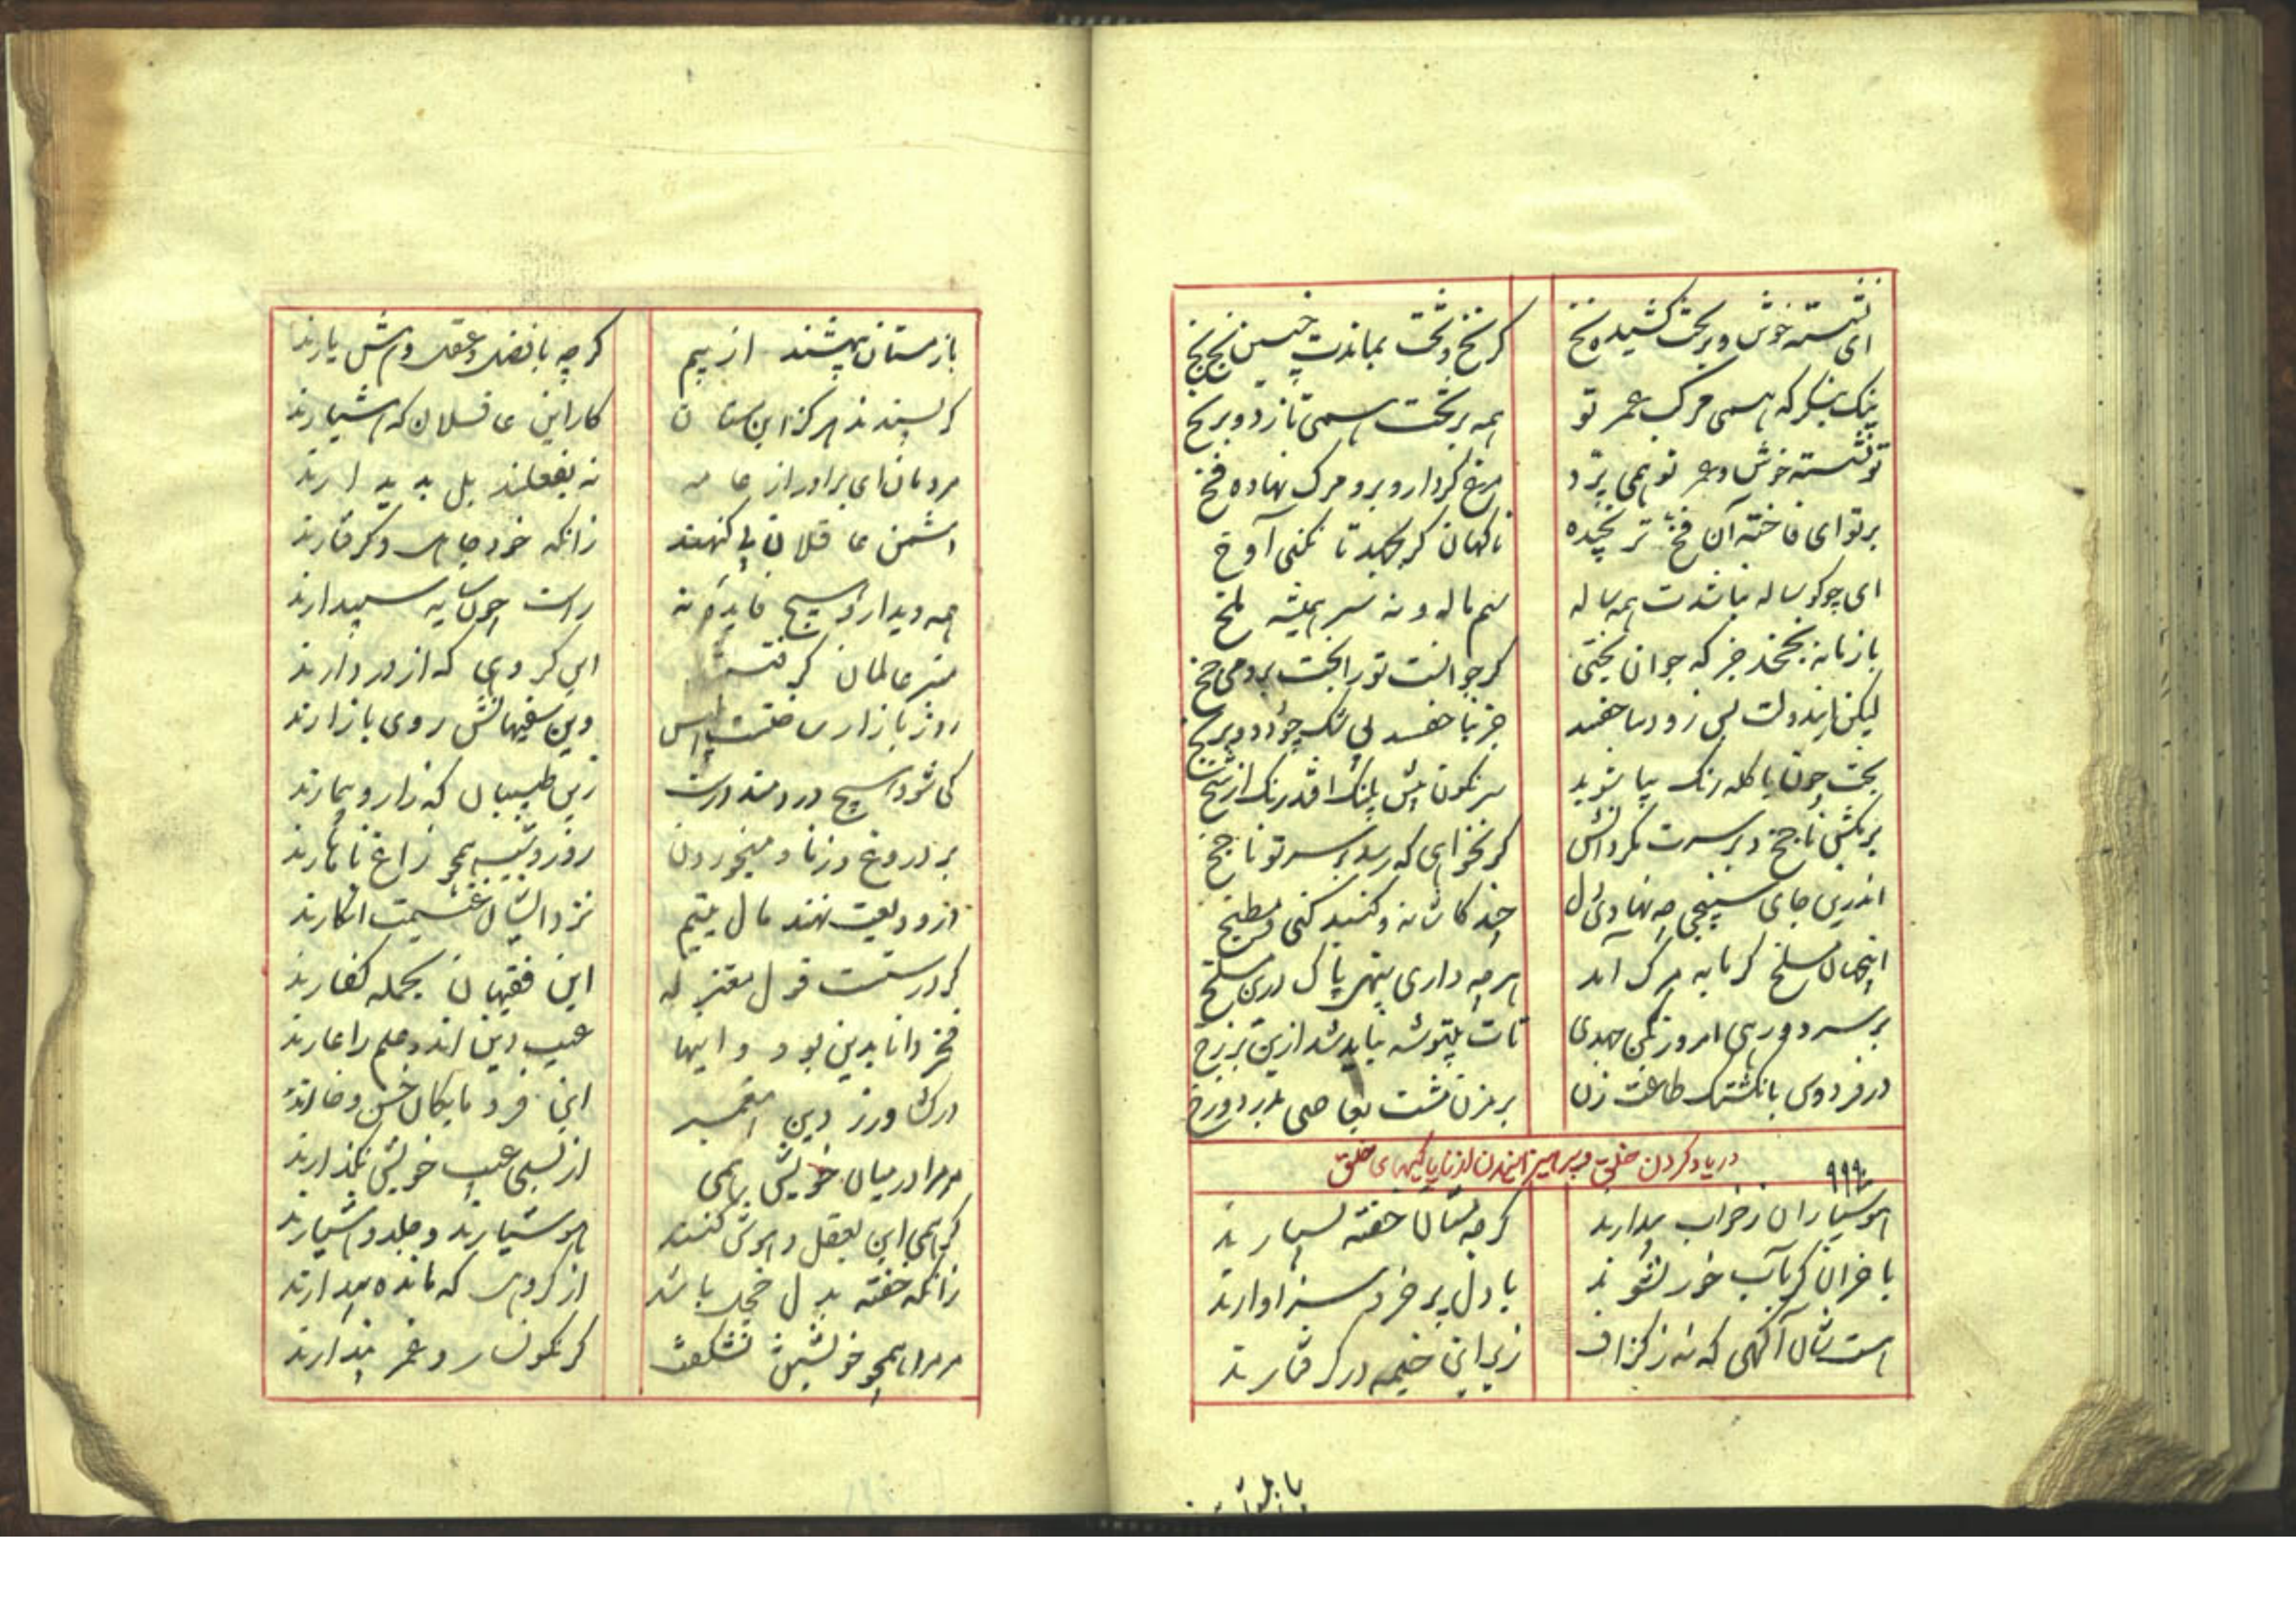 ای نشسته خوش و بر تخت کشیده نخ
کر نخ و تخت بماندت چنین نخ نخ
نیک بنگر که همی مرکب عمر تو
همه بر تخت همی تازد و بر یخ
تو نشسته خوش و عمر تو همی پرد
مرغ کردار و برو مرک نهاده فخ
بر تو ای فاخته آن فخ تر نجیده
ناکهان کر بجهد تا نکنی آوخ
ای چو کوساله نباشدت همه ساله
باز نانه بخمخد جز که جوان بختی
کر جوانست تو را بخت برو می چخ
لیکن نابد ولت بی زود
بخت چون با کله رنک بیاشوبد
سرنکون پیش پلنک افتد رنک از شخ
بر مکش ناچخ و بر سرت مکردانش
کر نخواهی که رسد بر سر تو ناچخ
اندرین جای سپنجی چه نهادی دل
چند کاشانه و کنبد کنی و مطبخ
اینجهان مسلخ کرمابه مرک آمد
هر چه داری بنهی پاک درین مسلخ
بر سر دو رهی امروز بکن جهدی
تات بیتوشه نباید شد ازین برزخ
در فردوس بانکشتک طاعت زن
بر مزن مشت بعاصی بدر دوزخ
در یاد کردن خلق و پرهیز از ناپاکیهای خلق
هوشیاران ز خواب بیدارند
کرچه مستان خفته بسیارند
با خران کر بآب خور نشوند
با دل پر خرد سزاوارند
هست شان آکهی که نه ز کزاف
زیر این خیمه در کرفتارند
باز مستان نهشتند از بیم
کرچه با فضل و عقل و هش یارند
کی پسندند هرکز این مستان
کار این عاقلان که هشیارند
مردمان ای برادر از عامه
نه بفعلند بل بدیدارند
دشمن عاقلان بی کنهند
زانکه خود جاهل و کرفتارند
همه دیدار و هیچ فایده نه
راست چون سایه سپیدارند
منبر عالمان کرفتستند
این کروهی که از در دارند
روز بازار ساخته است ابلیس
وین سفیهانش روی بازارند
کی شود هیچ دردمند درست
زین طبیبان که زار و بیمارند
بر دروغ و زنا و میخوردن
روز و شب همچو زاغ ناهارند
ور ودیعت نهند مال یتیم
نزد ایشان غنیمت انکارند
کر درستست قول معتزله
این فقیهان بجمله کفارند
فخر دانا بدین بود و اینها
عیب دین اند و علم را عارند
در کشاورز دین پیغمبر
این فرومایکان خس و خارند
مر مرا در میان خویش همی
از بسی عیب خویش نکذارند
کر همی این بعقل و هوش کنند
هوشیارند و جلد و هشیارند
زانکه خفته بدل خجل باشد
از کروهی که مانده بیدارند
مر مرا همچو خویشتن نشکفت
کر نکونسار و غمر پندارند